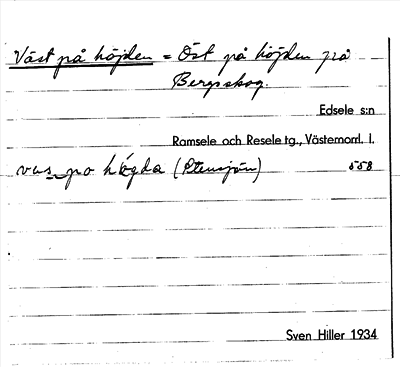 Väst på höjden = Öst på höjden på
Bergsskog.
Edsele s:n
Ramsele och Resele tg., Västernorrl. l.
vus po högda (Stensjön) 558
Sven Hiller 1934